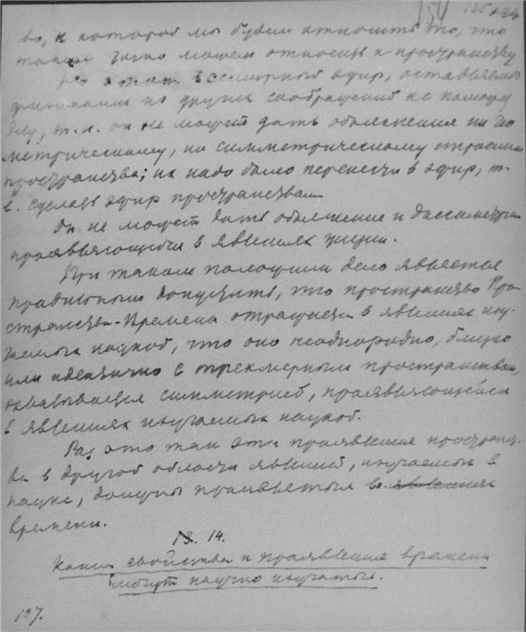 во, к которой мы будем относить то, что
также можем относить к пространству
этот всемирный эфир, оставляемый
физиками по другим соображениям не поможет
делу, т. к. он не может дать объяснения ни гео
метрическому, ни симметрическому строению
пространства; их надо было перенести в эфир, т.
е. сделать эфир пространством
Он не может дать объяснение и диссимметрии
проявляющейся в явлениях жизни.
При таком положении дело является
правильным допускать, что пространство Про
странства-Времена отражается в явлениях изу
чаемых наукой, что оно неоднородно, близко
или идентично с трехмерным пространством,
охватывается симметрией, проявляющейся
в явлениях изучаемых наукой.
Раз это так эти проявления пространст
ва в другой области явлений, изучаемых в
науке, должны проявляться в явлениях
времени.
13. 14.
Какие свойства и проявления времени
могут научно изучаться.
137.